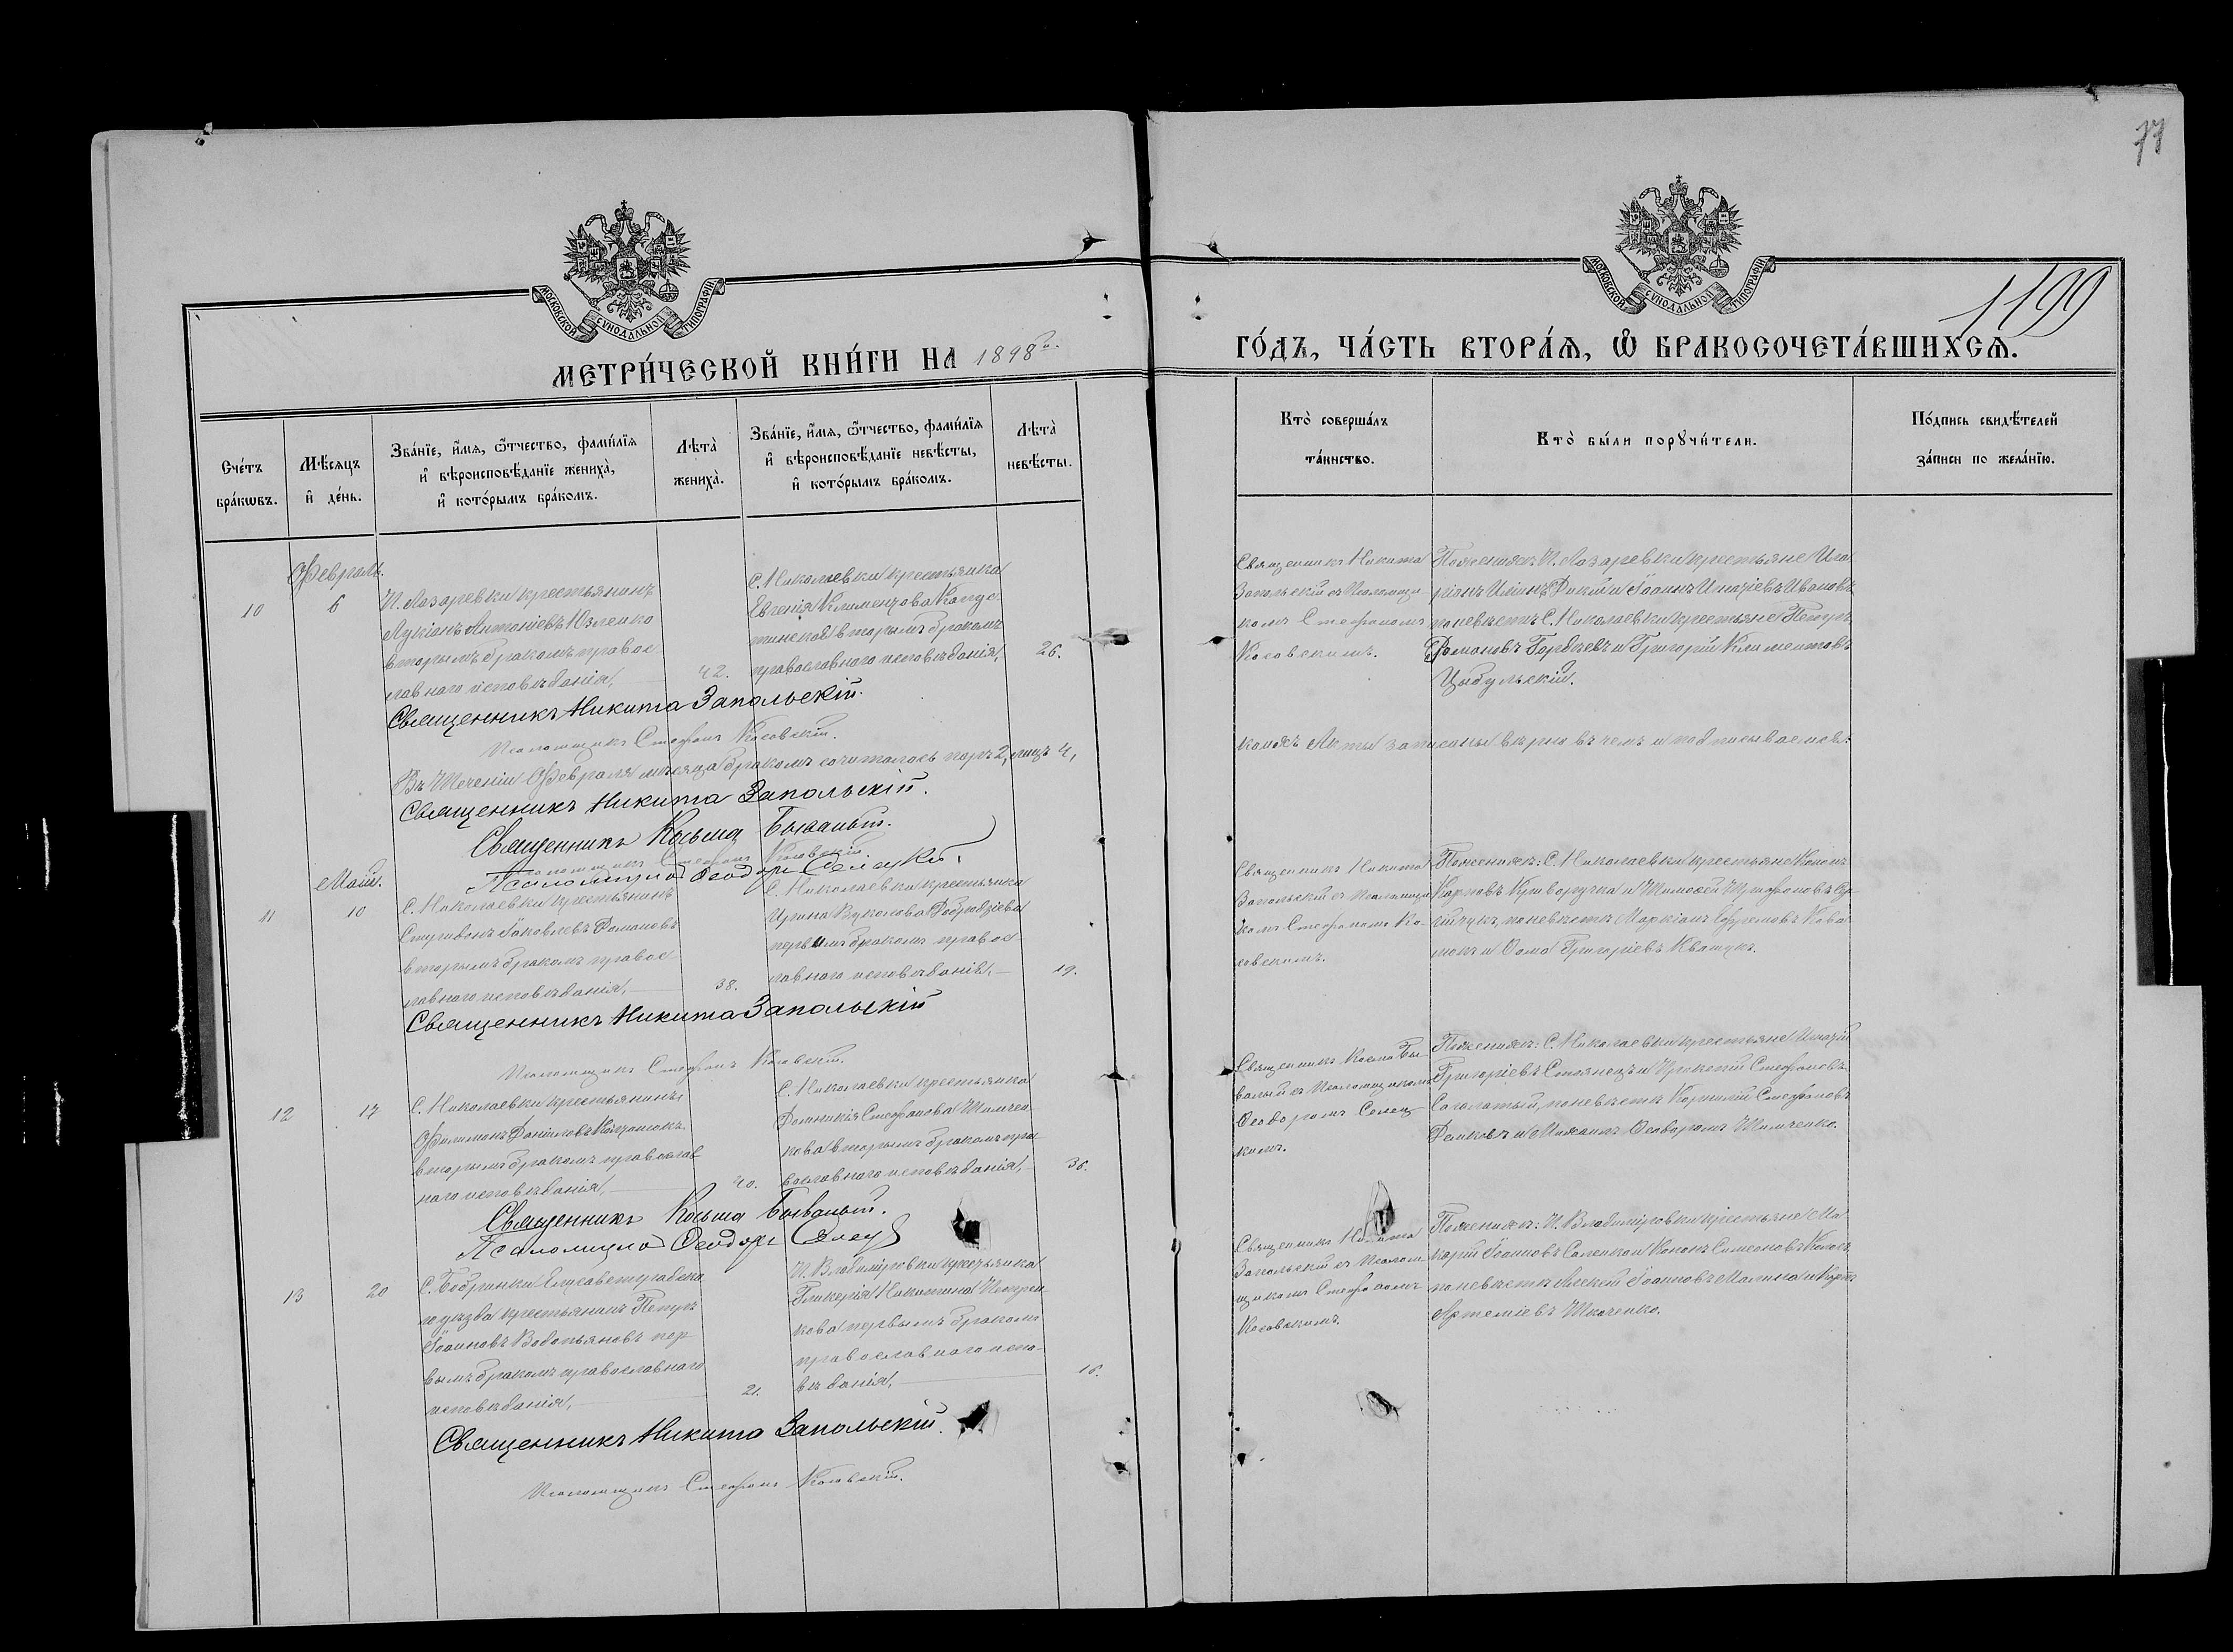 77
1199
МОСКОВСКОЙ СѴНОДАЛЬНОЙ ТИПОГРАФІИ
МОСКОВСКОЙ СѴНОДАЛЬНОЙ ТИПОГРАФІИ
МЕТРИ́ЧЕСКОЙ КНИ́ГИ НА 1898 й.
ГО́ДЪ, ЧА́СТЬ ВТОРА́Ѧ, Ѿ БРАКОСОЧЕТА́ВШИХСѦ.
Сче́тъ бра́кѡвъ.
Мѣ́сѧцъ и҆ де́нь.
Зва́нїе, и҆́мѧ, ѻ҆́тчество, фами́лїѧ
и҆ вѣроисповѣ́данїе жениха̀,
и҆ кото́рымъ бра́комъ.
Лѣта̀ жениха̀.
Зва́нїе, и҆́мѧ, ѻ҆́тчество, фами́лїѧ
и҆ вѣроисповѣ́данїе невѣ́сты,
и҆ кото́рымъ бра́комъ.
Лѣта̀ невѣ́сты.
Кто̀ соверша́лъ
та́инство.
Кто̀ бы́ли порꙋчи́тели.
По́дпись свидѣ́телей
за́писи по жела́нїю.
Февраль.
10
6
Лазаревки крестьянинъ
Лукіанъ Антоніевъ Юзленко
вторымъ бракомъ право-
славнаго исповѣданія,
42.
С. Николаевки крестьянка
Евгенія Климентова
вторымъ бракомъ
православнаго исповѣданія,
26.
Священникъ Никита
Запольскій съ Псаломщи-
комъ Стефаномъ
Косовскимъ.
По женихѣ: Лазаревки крестьяне
Іоаннъ Игнатіевъ Ивановъ
по невѣстѣ С. Николаевки крестьяне Петръ
Романовъ и Григорій Климентовъ
Цыбульскій.
Священникъ Никита Запольскій.
Псаломщикъ Стефанъ Косовскій.
Въ теченіи Февраля мѣсяца бракомъ сочиталось паръ 2, лицъ 4,
Акты записаны вѣрно въ чемъ и подписываемся:
Священникъ Никита Запольскій.
Священникъ Косьма Бывалый.
Псаломщикъ Стефанъ Косовскій.
Псаломщикъ Ѳеодоръ Селецкій.
Май.
11
10
С. Николаевки крестьянинъ
Спиридонъ Іаковлевъ Романовъ
вторымъ бракомъ право-
славнаго исповѣданія,
38.
С. Николаевки крестьянка
Ирина Вуколова
первымъ бракомъ право-
славнаго исповѣданія,
19.
Священникъ Никита
Запольскій съ Псаломщи-
комъ Стефаномъ Ко-
совскимъ.
По женихѣ: С. Николаевки крестьяне
Карповъ Криворучка и Тимофей Трофимовъ
по невѣстѣ Маркіанъ Ефремовъ
и Ѳома Григоріевъ Квашукъ.
Священникъ Никита Запольскій
Псаломщикъ Стефанъ Косовскій.
12
17
С. Николаевки крестьянинъ
Филимонъ Даніиловъ
вторымъ бракомъ православ-
наго исповѣданія,
40.
С. Николаевки крестьянка
Домникія Стефанова Шимчен-
кова вторымъ бракомъ пра-
вославнаго исповѣданія,
36.
Священникъ Косма Бы-
валый съ Псаломщикомъ
Ѳеодоромъ Селец-
кимъ.
По женихѣ: С. Николаевки крестьяне Игнатій
Григоріевъ и Прокопій Стефановъ
по невѣстѣ Корнилій Стефановъ
и Михаилъ Ѳеодоровъ Шимченко.
Священникъ Косьма Бывалый.
Псаломщикъ Ѳеодоръ Селец
13
20
С. Бобринки Елисаветградска-
го уѣзда крестьянинъ Петръ
Іоанновъ Водопьяновъ пер-
вымъ бракомъ православнаго
исповѣданія,
21.
Владиміровки крестьянка
Гликерія Никитина
первымъ бракомъ
православнаго испо-
вѣданія,
16.
Священникъ Никита
Запольскій съ Псалом-
щикомъ Стефаномъ
Косовскимъ.
По женихѣ: Владиміровки крестьяне Ма-
карій Іоанновъ и Кононъ Симеоновъ
по невѣстѣ Алексій Іоанновъ Малина
Артеміевъ Ткаченко.
Священникъ Никита Запольскій.
Псаломщикъ Стефанъ Косовскій.